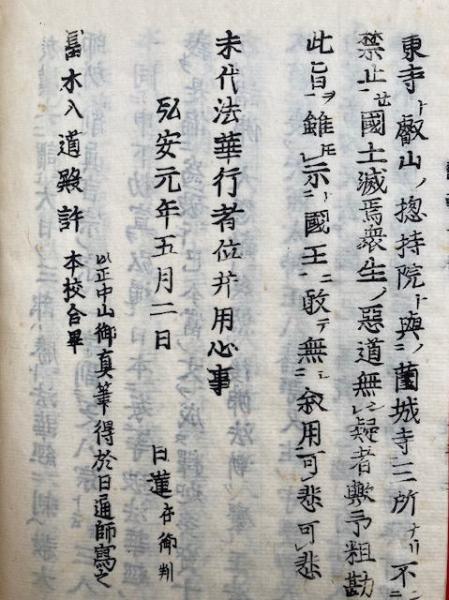 東寺ト叡山ノ揔持院ト與ノ薗城寺三所ナリ不ニ
禁止セ國土滅焉衆生ノ惡道無レ疑者歟予粗勘
此旨ヲ雖レ示ニ國王ニ敢テ無ニ叙用可レ悲可レ悲
末代法華行者位并用心事
弘安元年五月二日
日蓮在御判
富木入道殿許
以正中山御真筆得於日通師寫之
本校合畢